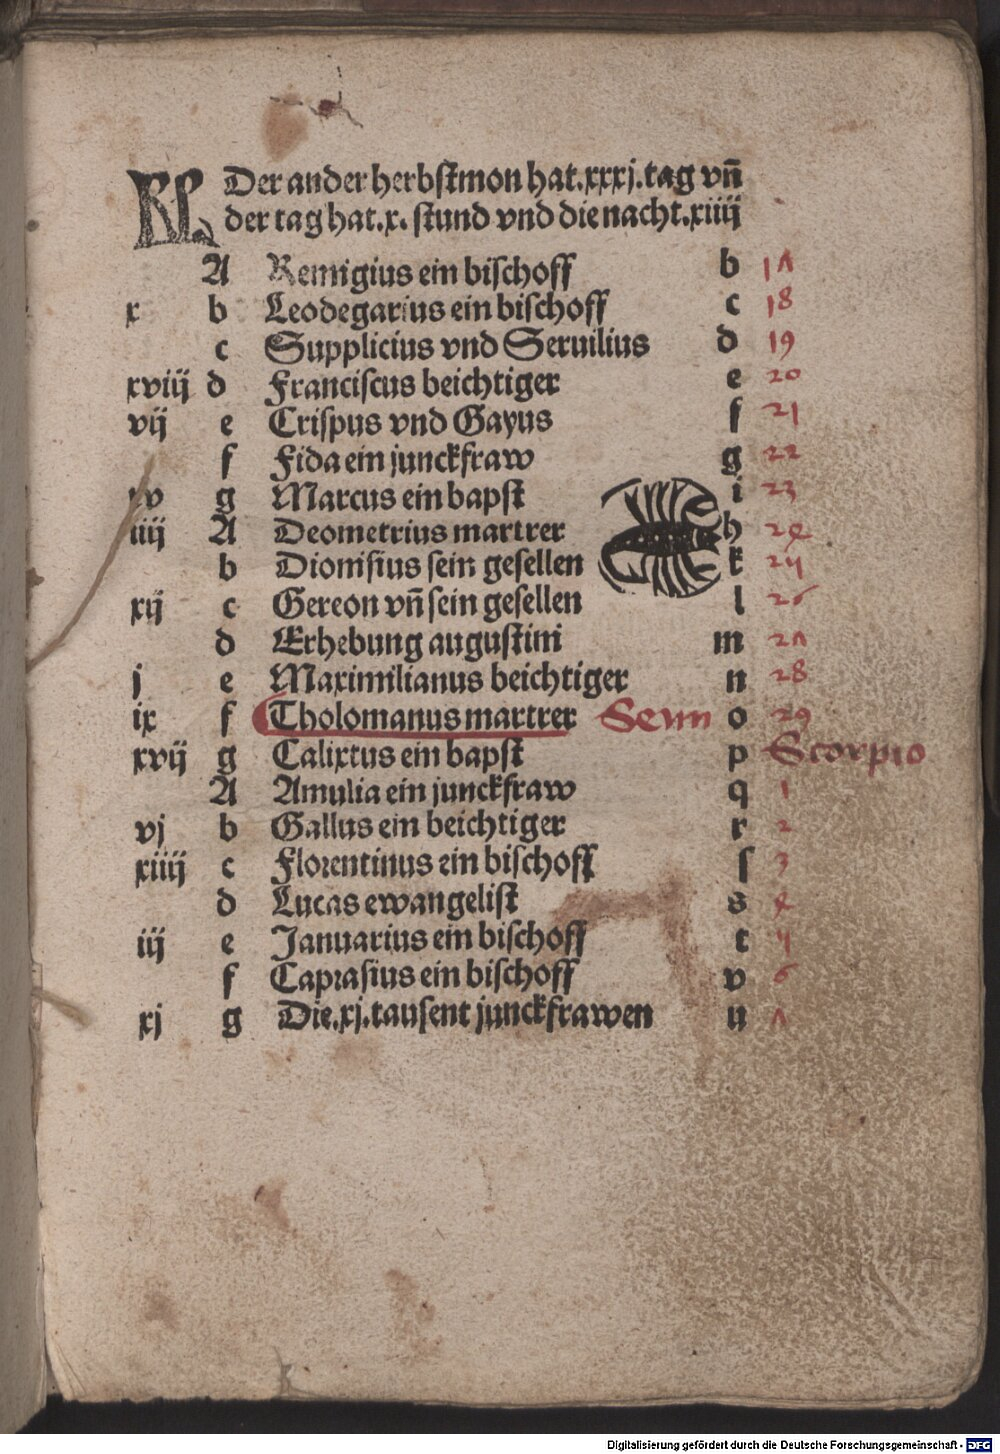 KL Der ander herbſtmon hat.xxxj.tag vn̄
der tag hat.x. ſtund vnd die nacht.xiiij
A Remigius ein biſchoff b 1Λ
x b Leodegarius ein biſchoff c 18
c Supplicius vnd Seruilius d 19
xviij d Franciſcus beichtiger e 20
vij e Criſpus vnd Gayus f 21
f Fida ein junckfraw g 22
g Marcus ein bapſt i 23
iiij A Deometrius martrer h 24
b Dioniſius ſein geſellen k 25
xij c Gereon vn̄ ſein geſellen l 26
d Erhebung auguſtini m 2Λ
j e Maximilianus beichtiger n 28
ix f Tholomanus martrer Senn o 29
xvij g Calixtus ein bapſt p Scorpio
A Amulia ein junckfraw q 1
vj b Gallus ein beichtiger r 2
xiiij c Florentinus ein biſchoff ſ 3
d Lucas ewangeliſt s 4
iij e Januarius ein biſchoff t 5
f Capraſius ein biſchoff v 6
xj g Die.xj.tauſent junckfrawen u Λ
Digitalisierung gefördert durch die Deutsche Forschungsgemeinschaft - DFG